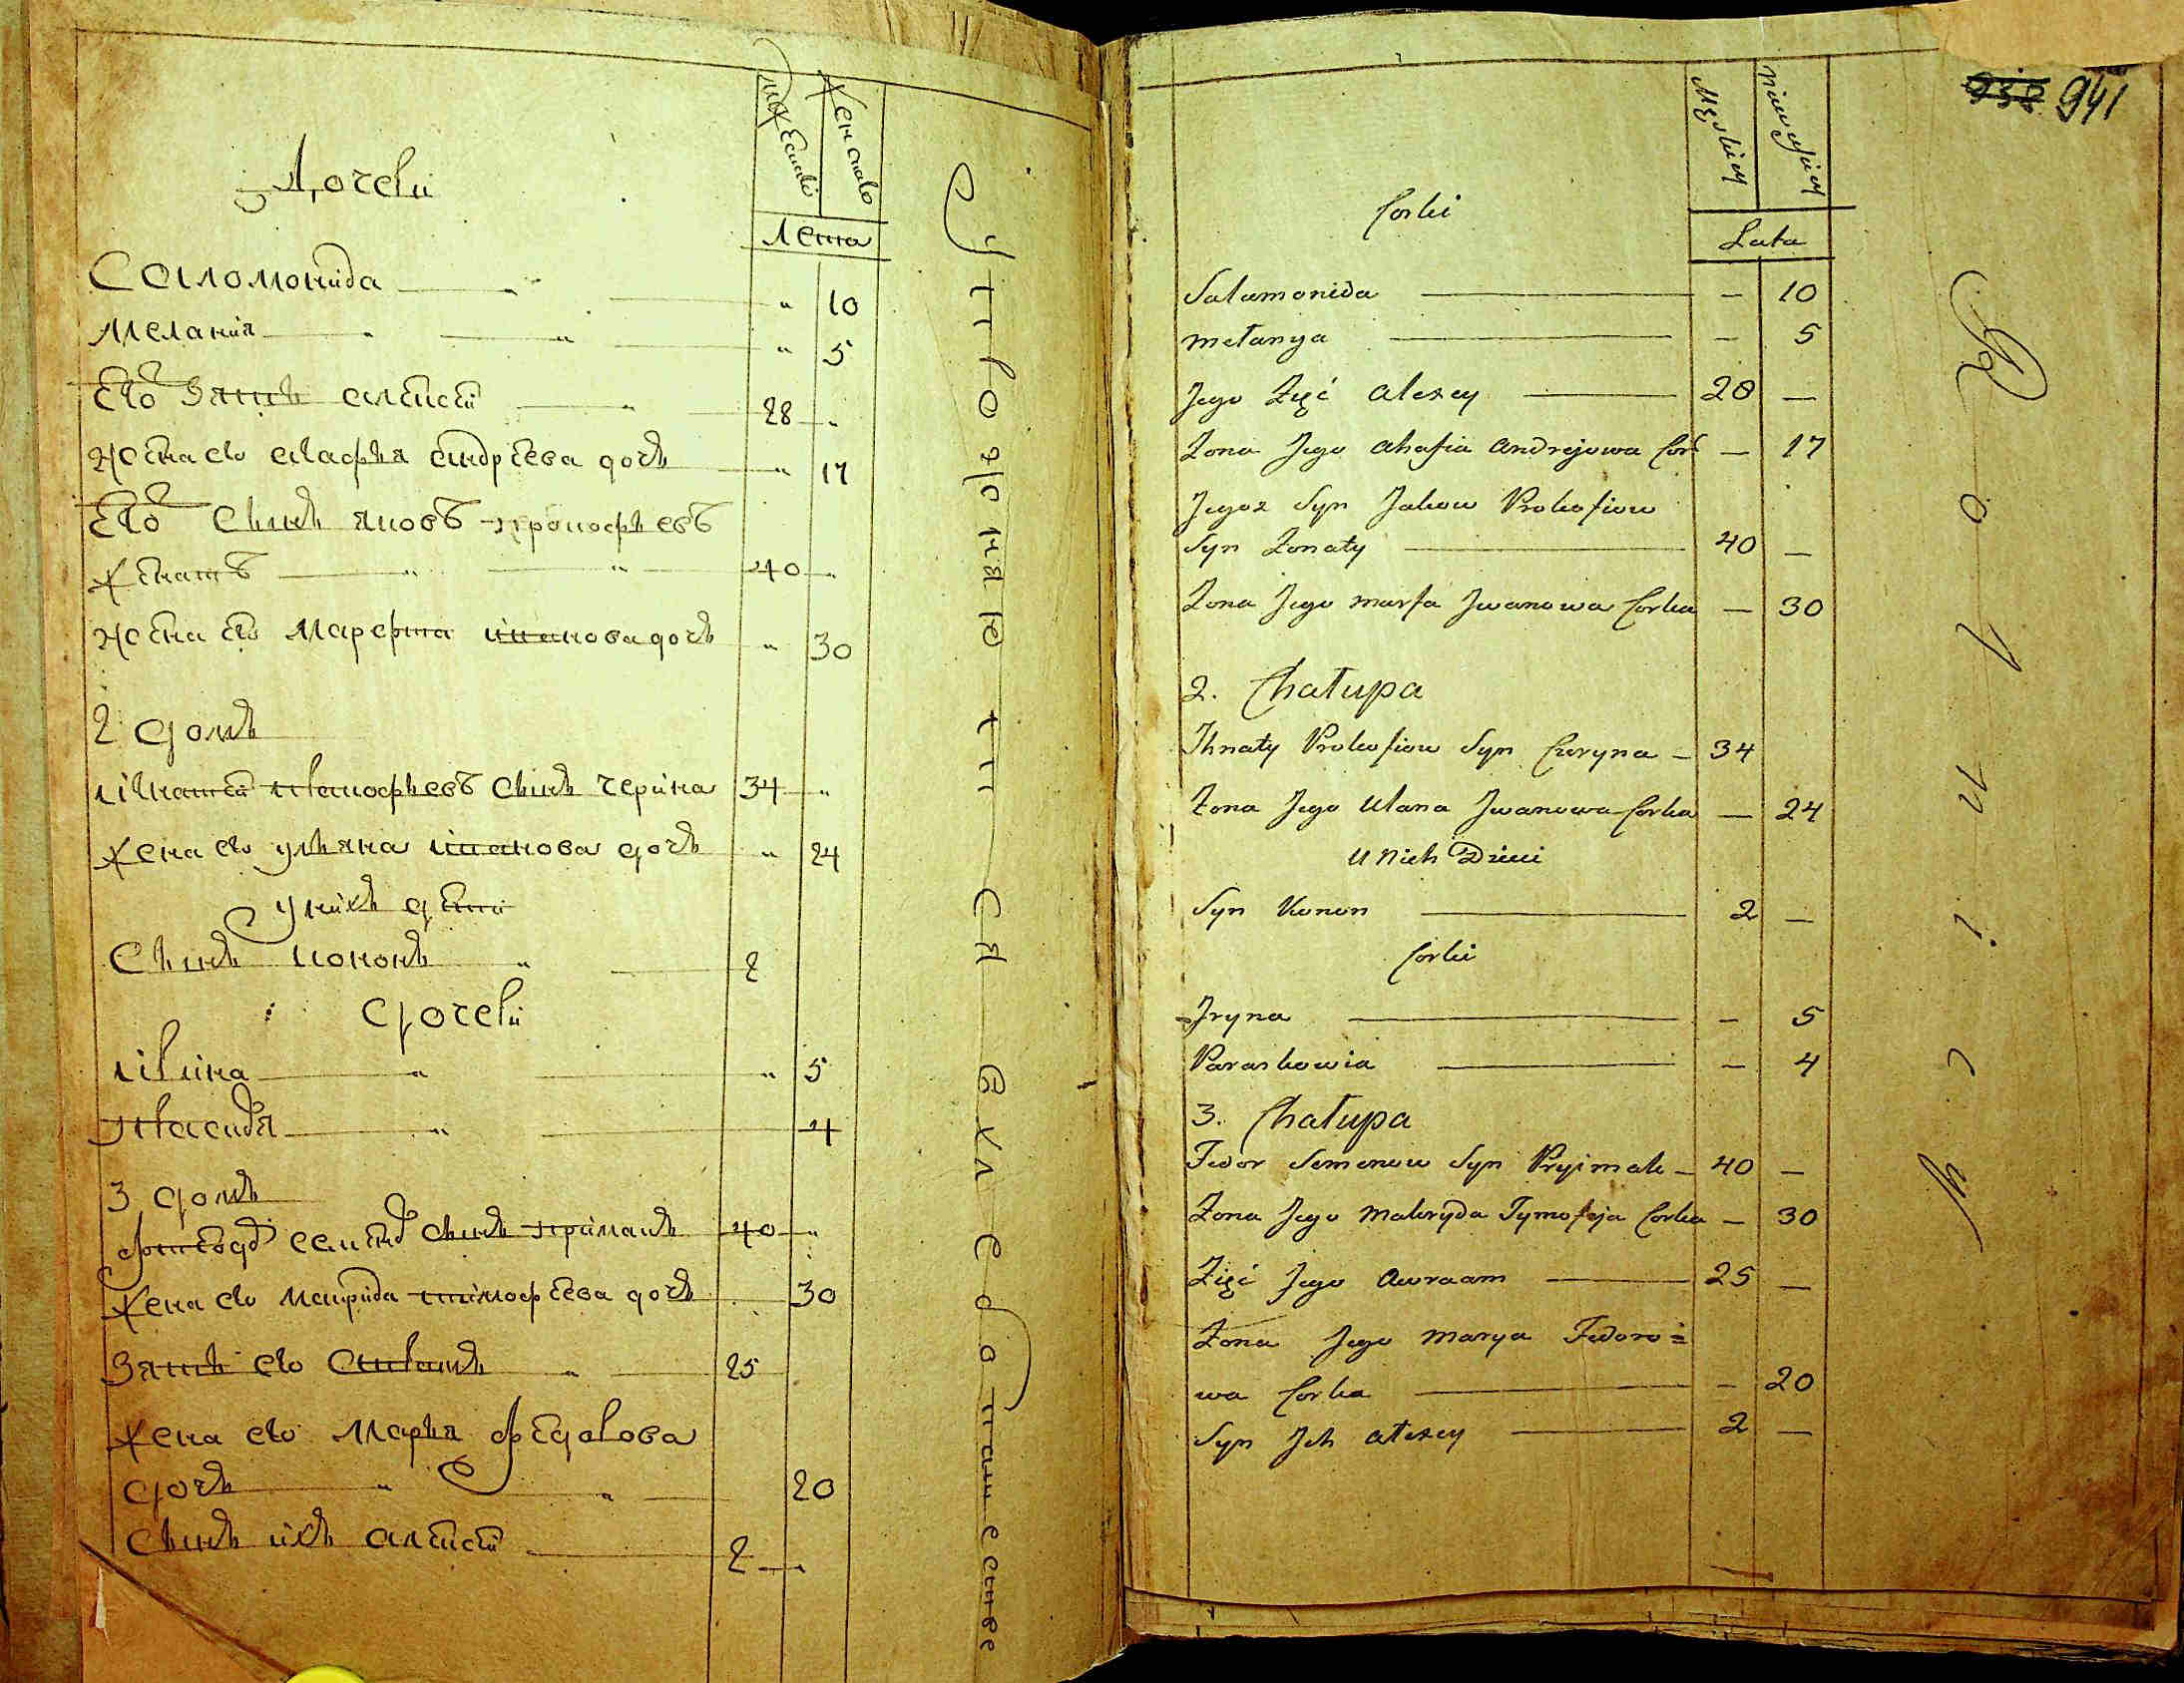 Дочери
Мужеска
Женска
Лета
Саломонида " " 10
Мелания " " " 5
Его Зять алексей " 28 "
жена его агафья андреева дочь " 17
Его Сынъ яковъ прокофьевъ
Женатъ " " 40 "
жена его Марфа иванова дочь " 30
2 домъ
игнатей прокофьевъ сынъ черина 34 "
Жена его ульяна иванова дочь " 24
у нихъ дети
Сынъ кононъ " 2
Дочери
ирина " " 5
" 4
3 домъ
Федоръ семеновъ сынъ приймакъ 40 "
Жена его макрида тимофеева дочь 30
Зять его " 25
Жена его Марья Федорова
дочь " " 20
Сынъ ихъ алексей 2
952 941
Męskiey
Niewieściey
Corki
Lata
Salamonida — 10
Mełanya — 5
Jego Zięć Alexey 28 —
Żona Jego Ahafia Andrejowa Cor — 17
Jegoż Syn Jakow Prokofiow
Syn Żonaty 40 —
Żona Jego Marfa Jwanowa Corka — 30
2. Chałupa
Jhnaty Prokofiow Syn Czeryna — 34
Żona Jego Ulana Jwanowa Corka — 24
U Nich Dzieci
Syn Konon 2 —
Corki
Jryna — 5
Paraskowia — 4
3. Chałupa
Fedor Semenow Syn Pryimak — 40 —
Żona Jego Makryda Tymofeja Corka — 30
Zięć Jego Awraam 25 —
Żona Jego Marya Fedoro=
wa Corka — 20
Syn Jch Ałexey 2 —